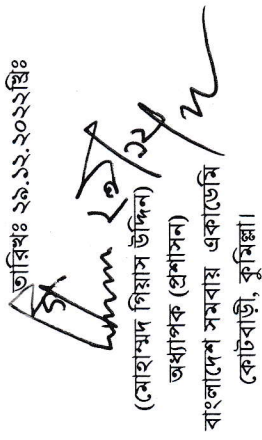 তারিখঃ ২৯.১২.২০২২খ্রিঃ
২৯/১২/২২
(মোহাম্মদ গিয়াস উদ্দিন)
অধ্যাপক (প্রশাসন)
বাংলাদেশ সমবায় একাডেমি
কোটবাড়ী, কুমিল্লা।